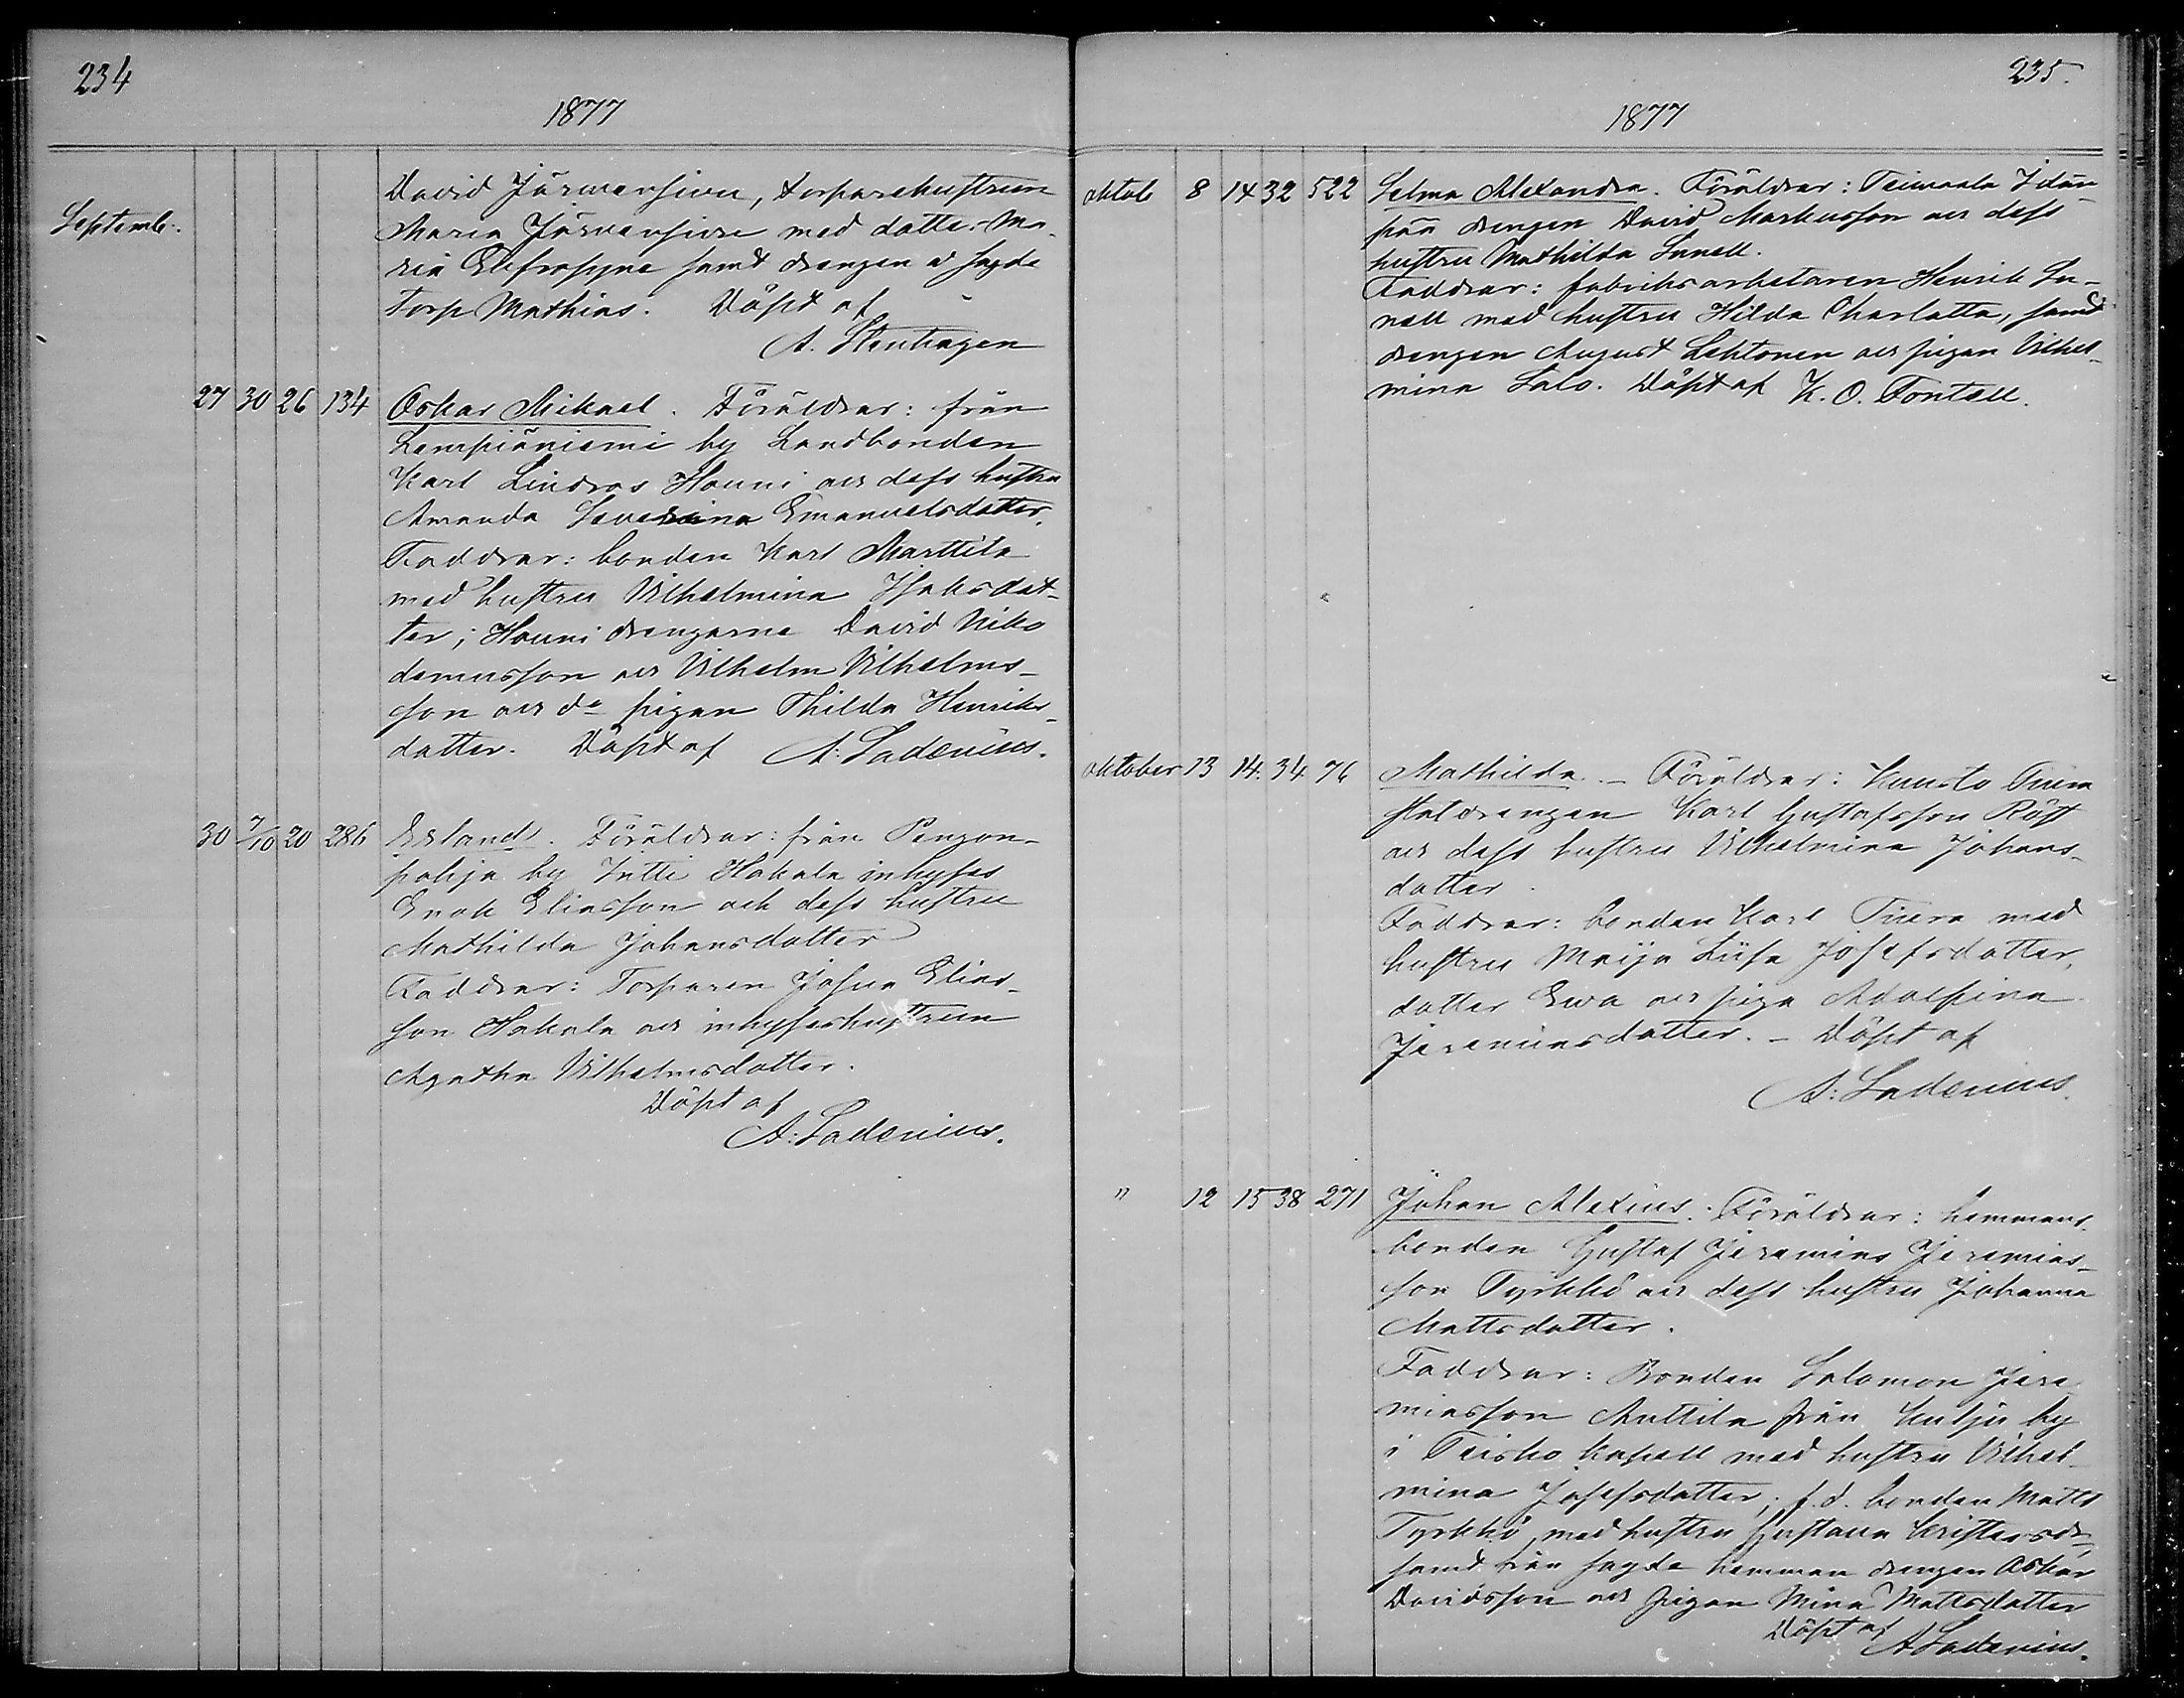 234
1877
Septemb.
David Järvensivu, torparehustrun
Maria Järvensivu med dotter Ma-
ria Elefrosyne samt drengen å sagde
torp Mathias. Döpt af
A. Stenhagen
27 30 26 134 Oskar Mikael. Föräldrar: från
Lempiäniemi by Landbonden
Karl Lindroos Honni och dess hustru
Amanda Severina Emanuelsdotter.
Faddrar: bonden Karl Marttila
med hustru Vilhelmina Isaksdot-
ter; Honni drengarne David Niko
demusson och Vilhelm Vilhelms-
son och do pigan Thilda Henriks-
dotter. Döpt af A. Ladenius.
30 7/10 20 286 Erland. Föräldrar: från Pengon-
pohja by Intti Hakala inhyses
Enok Eliasson och dess hustru
Mathilda Johansdotter
Faddrar: Torparen Josua Elias-
son Hakala och inhyseshustrun
Agatha Vilhelmsdotter.
Döpt af
A. Ladenius.
235.
1877
oktob 8 14 32 522 Selma Alexandra. Föräldrar: Teimaala Idän-
pää drengen David Markusson och dess
hustru Mathilda Snnell.
Faddrar: fabriksarbetaren Henrik Sn-
nell med hustru Hilda Charlotta, samt
drengen August Lehtonen och pigan Vilhel-
mina Salo. Döpt af K. O. Fontell.
oktober 13 14. 34 76 Mathilda. - Föräldrar: Kunsto Tiura
stal drengen Karl Gustafsson Röst
och dess hustru Vilhelmina Johans-
dotter.
Faddrar: bonden Karl Tiura med
hustru Maija Liisa Josefsdotter,
dotter Ewa och piga Adolfina
Jeremiasdotter. - Döpt af
A. Ladenius.
" 12 15 38 271 Johan Alexius. Föräldrar: hemmans-
bonden Gustaf Jeremias Jeremias-
son Tyrkkö och dess hustru Johanna
Mattsdotter.
Faddrar: Bonden Salomon Jere
miasson Anttila från Kulju by
i Teisko kapell med hustru Vilhel-
mina Josefsdotter; f.d. bonden Matts
Tyrkkö med hustru Gustava Kristersdr
samt från sagde hemman drengen Oskar
Davidsson och pigan Mina Mattsdotter
Döpt af
A Ladenius.